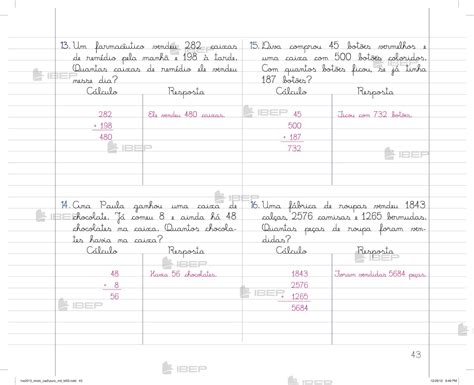 13. Um farmacêutico vendeu 282 caixas
de remédio pela manhã e 198 à tarde.
Quantas caixas de remédio ele vendeu
nesse dia?
Cálculo Resposta
282
+ 198
480
Ele vendeu 480 caixas.
14. Ana Paula ganhou uma caixa de
chocolate. Já comeu 8 e ainda há 48
chocolates na caixa. Quantos chocola-
tes havia na caixa?
Cálculo Resposta
48
+ 8
56
Havia 56 chocolates.
15. Diva comprou 45 botões vermelhos e
uma caixa com 500 botões coloridos.
Com quantos botões ficou, se já tinha
187 botões?
Cálculo Resposta
45
500
+ 187
732
Ficou com 732 botões.
16. Uma fábrica de roupas vendeu 1843
calças, 2576 camisas e 1265 bermudas.
Quantas peças de roupa foram ven-
didas?
Cálculo Resposta
1843
2576
+ 1265
5684
Foram vendidas 5684 peças.
43
IBEP
IBEP
IBEP
IBEP
IBEP
IBEP
IBEP
IBEP
IBEP
IBEP